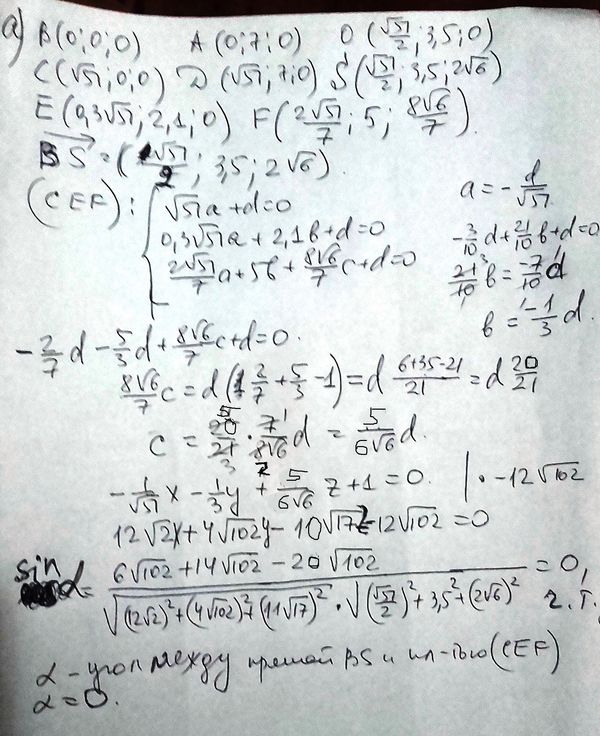 а) B(0;0;0) A(0;7;0) O(√51/2;3,5;0)
C(√51;0;0) D(√51;7;0) S(√51/2;3,5;2√6)
E(0,3√51;2,1;0) F(2√51/7;5;8√6/7).
BS=(√51/2;3,5;2√6).
(CEF): { √51a+d=0
0,3√51a+2,1b+d=0
2√51/7a+5b+8√6/7c+d=0
a=-d/√51
-3/10d+21/10b+d=0
21/10b=-7/10d
b=-1/3d.
-2/7d-5/3d+8√6/7c+d=0.
8√6/7c=d(2/7+5/3-1)=d 6+35-21/21=d 20/21
c=20/21·7/8√6d=5/6√6d.
-1/√51x-1/3y+5/6√6z+1=0. |·-12√102
12√2x+4√102y-10√17z-12√102=0
sinα=6√102+14√102-20√102/√(12√2)²+(4√102)²+(11√17)²·√(√51/2)²+3,5²+(2√6)²=0,
ч.т.
α-угол между прямой BS и пл-тью(CEF)
α=0.